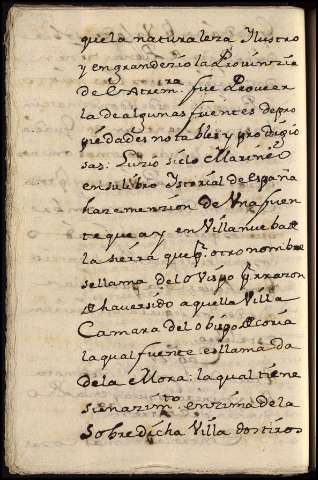 que la naturaleza Ylustro
y engrandezio la Provinzia
de Estrem.ra fue Proveer
la de algunas fuentes de pro
piedades notables y prodigio
sas: Luzio siclo Marineo
en su libro Ystorial de españa
haze menzion de Una fuen
te que ay en Villanueba de
la sierra que P.r otro nombre
se llama del oVispo P.r rrazon
de haver sido aquella Villa
Camara del obispo de coria
la qual fuente es llamada
de la Mora: la qual tiene
su nazim.to enzima de la
Sobre dicha Villa dos tiros